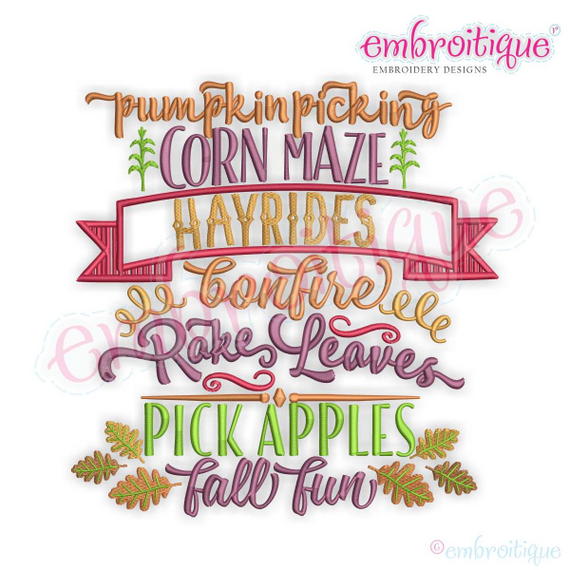 embroitique
EMBROIDERY DESIGNS
pumpkin picking
CORN MAZE
HAYRIDES
bonfire
Rake Leaves
PICK APPLES
fall fun
embroitique
© embroitique